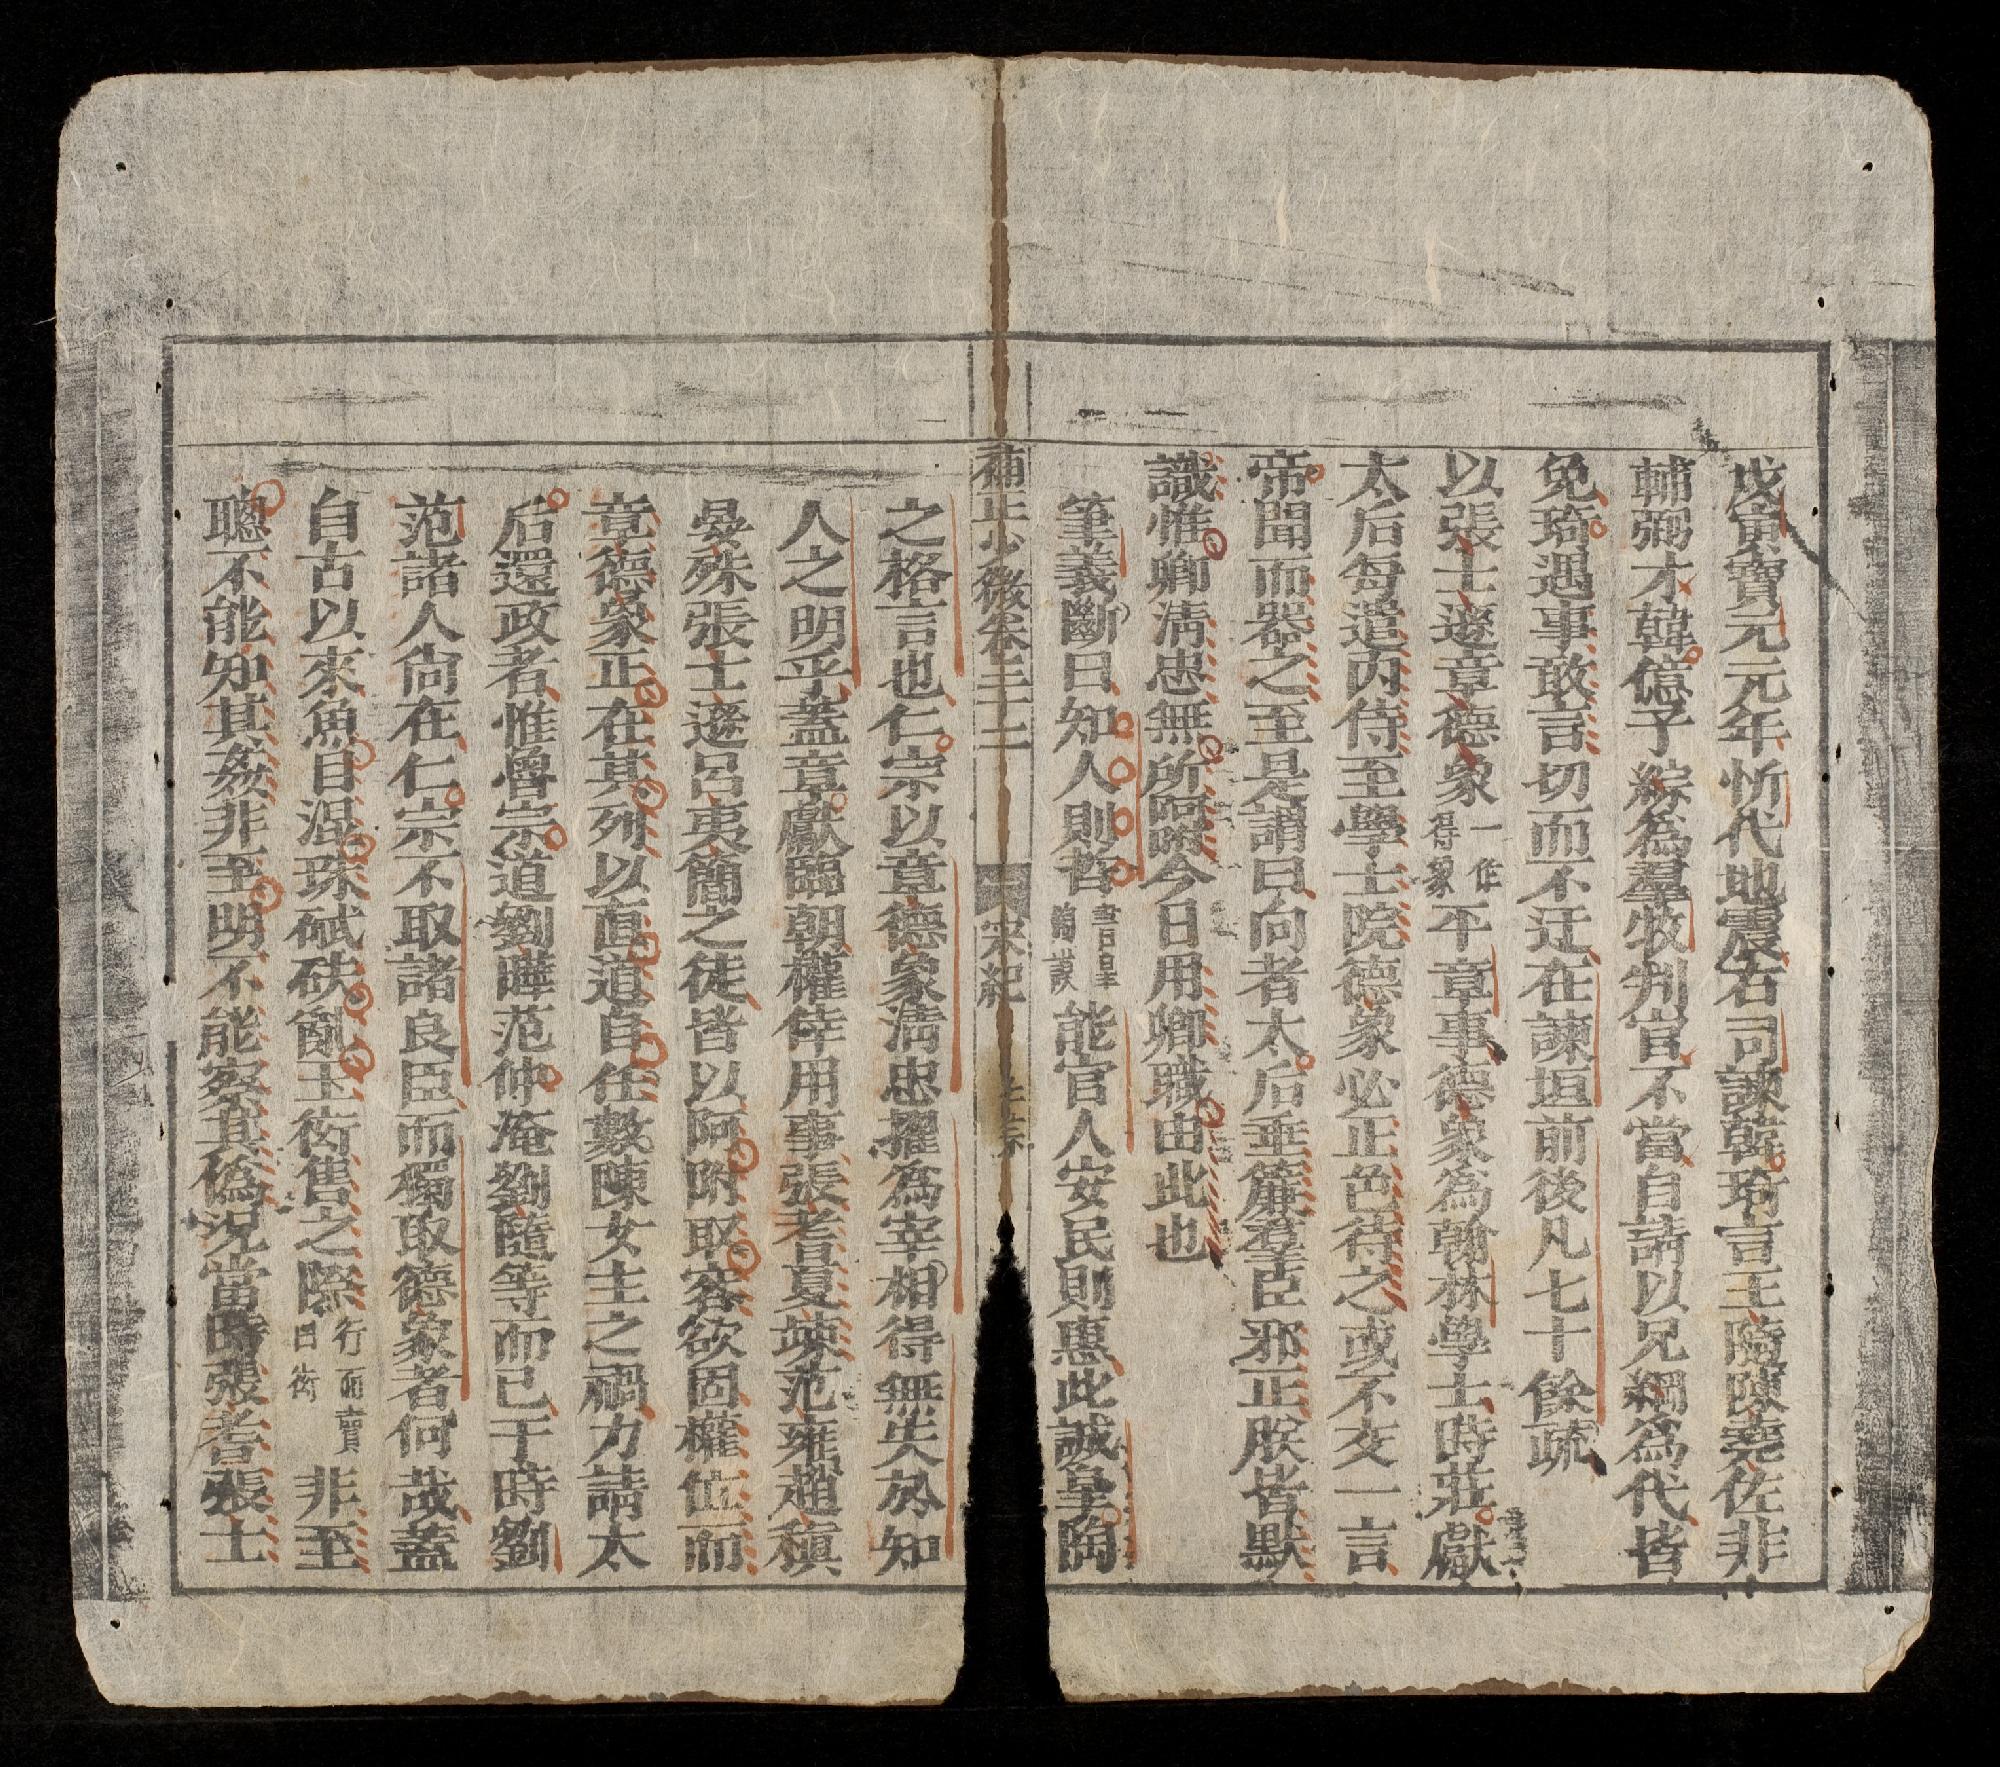 戊寅寶元元年忻代地震右司諫韓琦言王隨陳堯佐非
輔弼才韓億子綜為羣牧判官不當自請以兄綱為代皆
免琦遇事敢言切而不迂在諫垣前後凡七十餘疏
以張士遜章德象一作得象平章事德象為翰林學士時莊獻
太后每遣內侍至學士院德象必正色待之或不交一言
帝聞而器之至是謂曰向者太后垂簾羣臣邪正朕皆默
識惟卿清忠無所阿附今日用卿職由此也
筆義斷曰知人則哲書皋陶謨能官人安民則惠此誠皇陶
補正少微卷三十二 宋紀
之格言也仁宗以章德象清忠擢為宰相得無失於知
人之明乎蓋章獻臨朝權倖用事張耆夏竦范雍趙稹
晏殊張士遜呂夷簡之徒皆以阿附取容欲固權位而
章德象正在其列以直道自任數陳女主之禍力請太
后還政者惟魯宗道劉曄范仲淹劉隨等而已于時劉
范諸人尚在仁宗不取諸良臣而獨取德象者何哉蓋
自古以來魚目混珠碔砆亂玉衒售之際行而賣曰衒非至
聰不能知其姦非至明不能察其偽況當時張耆張士